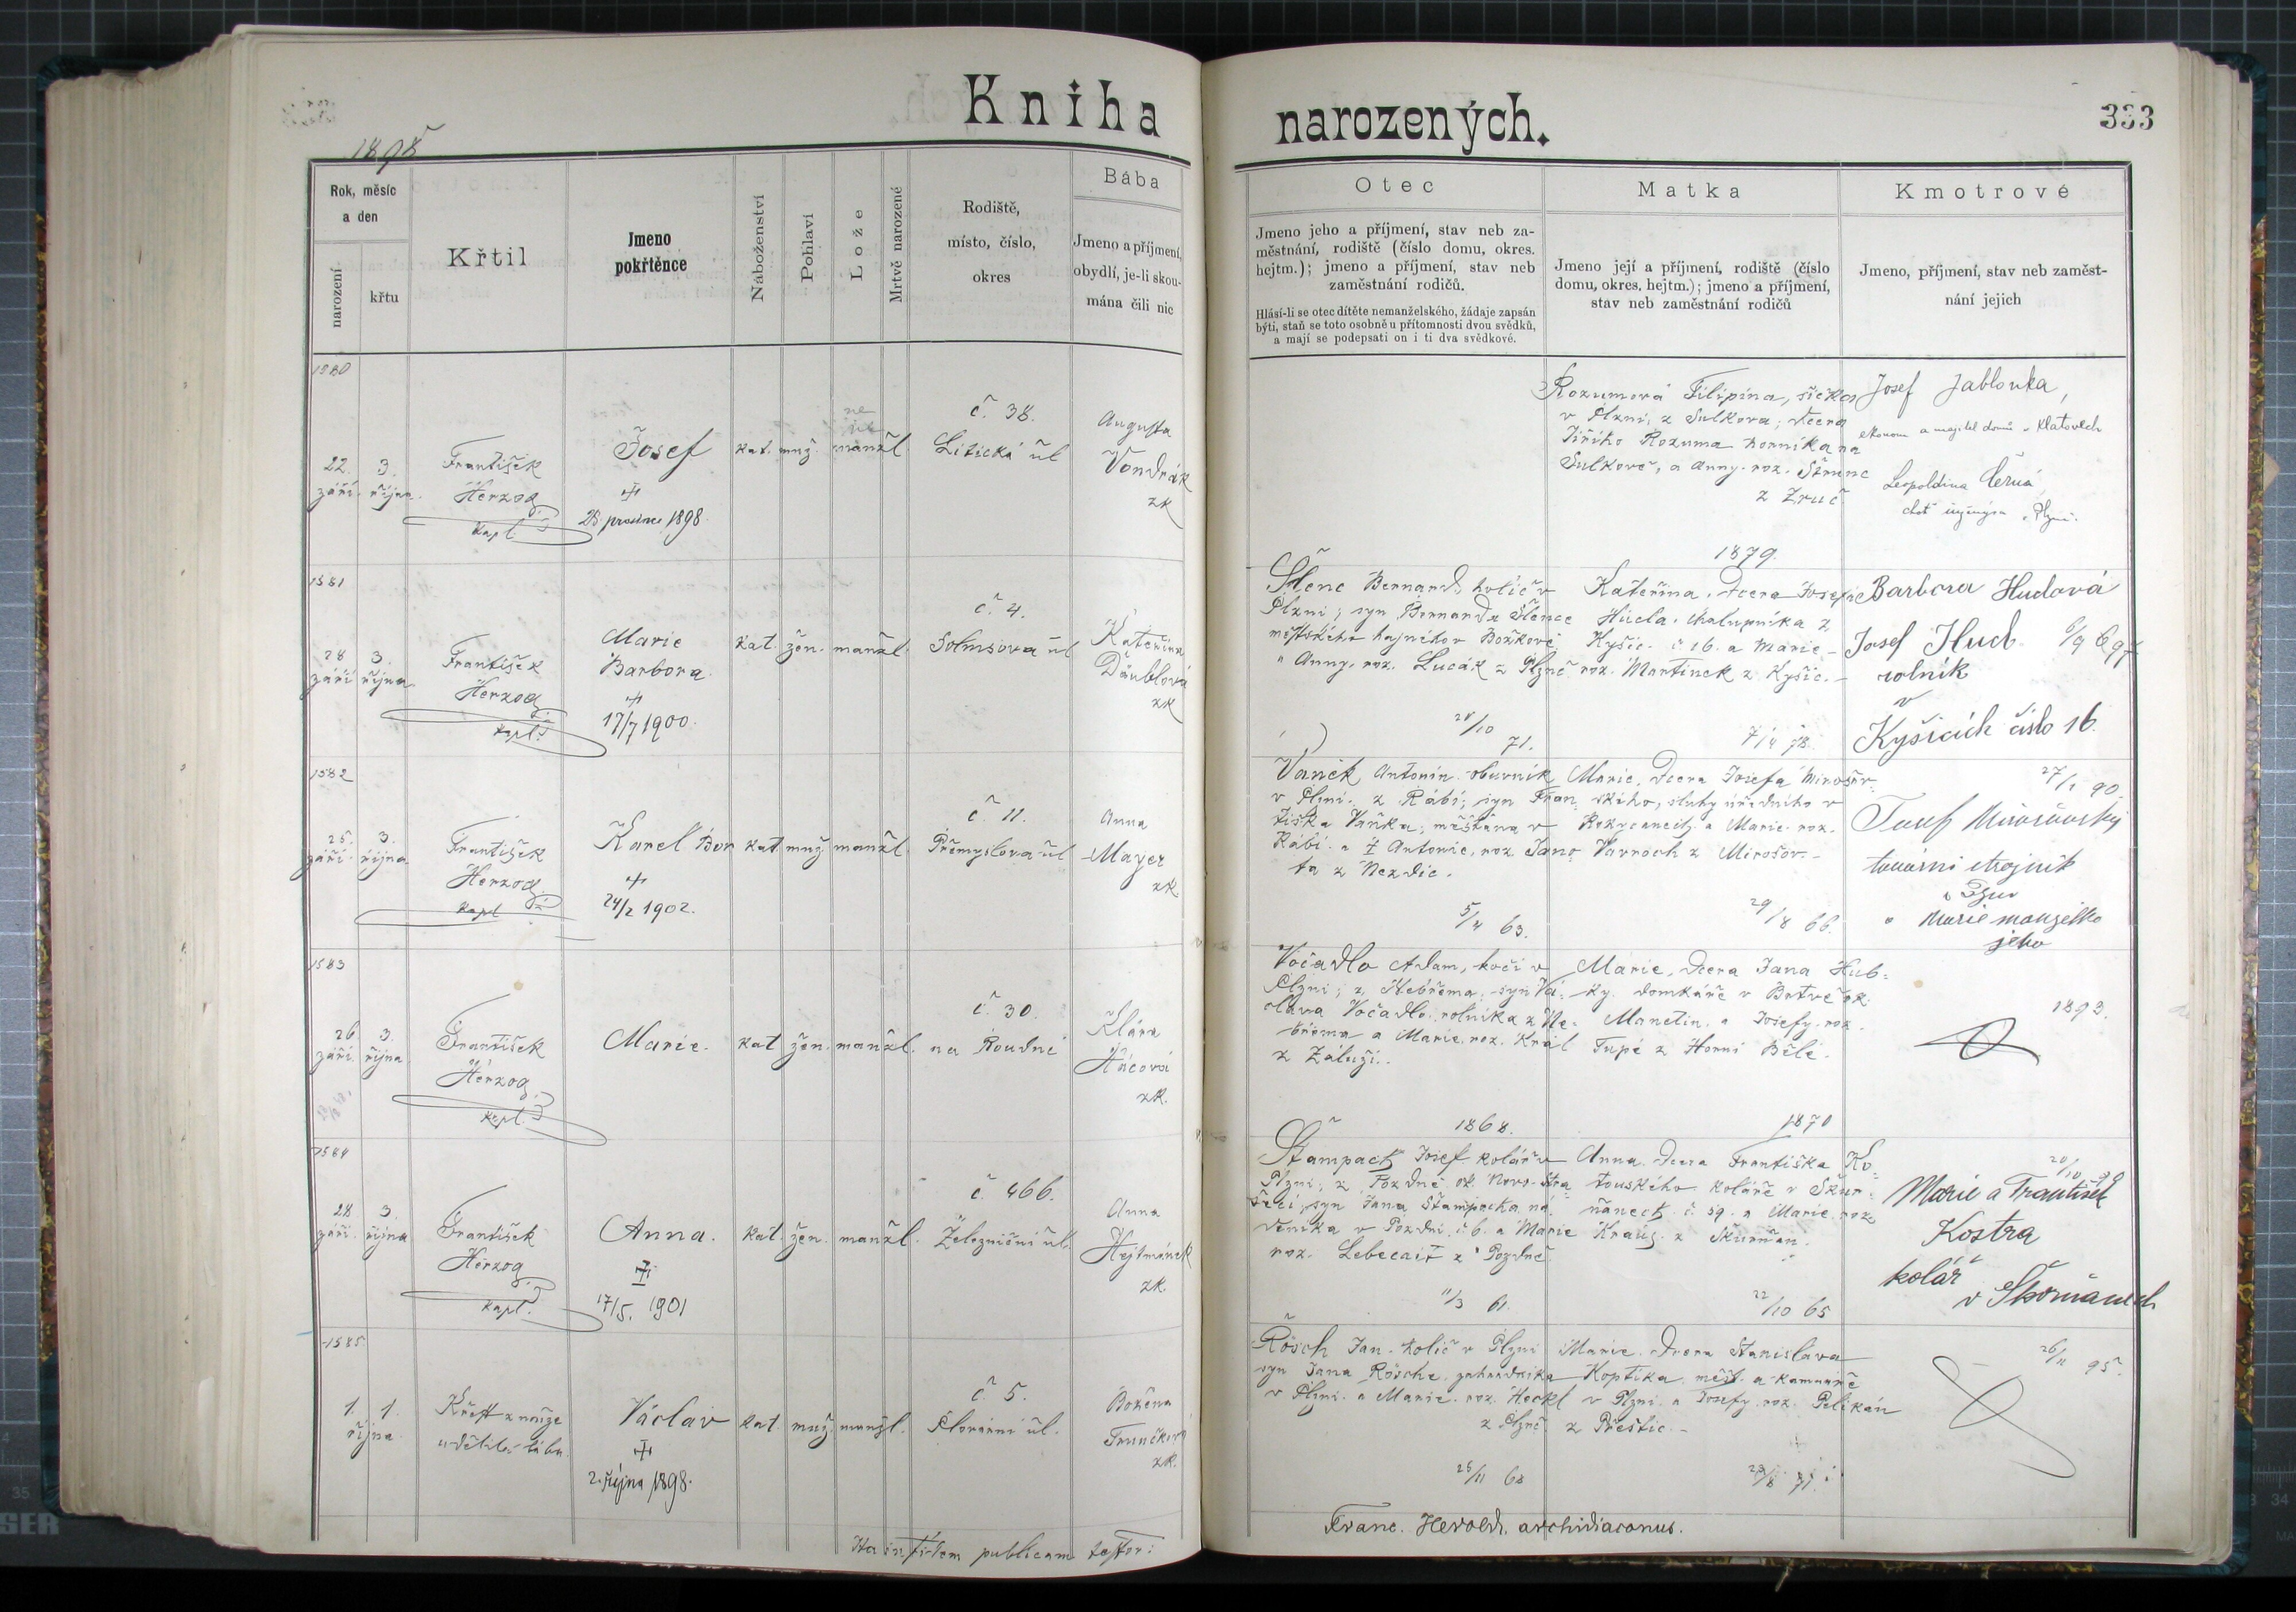 Kniha narozených.
333
1898
Rok, měsíc
a den
narození
křtu
Křtil
Jmeno
pokřtěnce
Náboženství
Pohlaví
Lože
Mrtvě narozené
Rodiště,
místo, číslo,
okres
Bába
Jmeno a příjmení,
obydlí, je-li skou-
mána čili nic
Otec
Jmeno jeho a příjmení, stav neb za-
městnání, rodiště (číslo domu, okres.
hejtm.); jmeno a příjmení, stav neb
zaměstnání rodičů.
Hlásí-li se otec dítěte nemanželského, žádaje zapsán
býti, staň se toto osobně u přítomnosti dvou svědků,
a mají se podepsati on i ti dva svědkové.
Matka
Jmeno její a příjmení, rodiště (číslo
domu, okres. hejtm.); jmeno a příjmení,
stav neb zaměstnání rodičů
Kmotrové
Jmeno, příjmení, stav neb zaměst-
nání jejich
1580
22.
září.
3.
října.
František
Herzog
kapl.
Josef
28 prosince 1898.
kat.
muž.
ne
manžl.
č. 38.
Litická ul
Augusta
Vondrák
zk
Rozumová Filipina, šička
v Plzni, z Sulkova, dcera
Jiřího Rozuma horníka na
Sulkově, a Anny roz.
z Zruč
1879.
Josef Jablonka,
ekonom a majitel domů v Klatovech
Leopoldina Černá,
choť v Plzni.
1581
28
září
3.
října
František
Herzog
kapl.
Marie
Barbora.
17/7 1900.
kat.
žen.
manžl.
č. 4.
Solmsova ul
Kateřina
Däublová
zk
Šlenc Bernard, holič v
Plzni; syn Bernarda Šlence
městského hajného v Božkově
a Anny, roz. Lucák z Plzně
28/10
71.
Kateřina, dcera Josefa
Hucla, chalupníka z
Kyšic č 16. a Marie
roz. Martinek z Kyšic.
7/4 78.
Barbora Hudová
Josef Hud.
rolník
v
Kyšicích číslo 16.
1582
25.
září.
3.
října
František
Herzog
kapl.
Karel Bor
24/2 1902.
kat
muž
manžl.
č. 11.
Přemyslova ul
Anna
Mayer
zk.
Vaněk Antonín obuvník
v Plzni, z Rábí; syn Fran
tiška Vaňka, měšťana v
Rábí a Antonie, roz Jano
ta z Nezdic.
5/4 63.
Marie, dcera Josefa Mirošov
ského, sluhy úředního v
Rokycanech, a Marie roz.
z Mirošov.
29/8 66.
27/1 90.
Josef Mirošovský
tovární strojník
a Marie manželka
jeho
1583
26
září.
3.
října
František
Herzog
kapl.
Marie.
kat
žen.
manžl.
č. 30.
na Roudné
Klára
Hácová
zk.
Vočadlo Adam, kočí v
Plzni; z Nebřema, syn Vá-
clava Vočadlo, rolníka z Ne-
břema a Marie, roz. Král
z Zaluží.
1868.
Marie, dcera Jana Hub-
ky, domkáře v Brtvě ok.
Manetin. a Josefy roz.
Tupé z Horní Bělé.
1870
1893.
1584
28
září.
3.
října
František
Herzog
kapl.
Anna.
17/5. 1901
kat.
žen.
manžl.
č. 466.
Železniční ul.
Anna
Hejtmánek
zk.
Štampach Josef kolář v
Plzni; z Pozdně ok. Novo-Stra
šecí, syn Jana Štampacha ná
deníka v Pozdni č. 6. a Marie
roz. z Pozdně.
11/3 61.
Anna, dcera Františka Ko-
koláře v Škvr-
ňanech č 59. a Marie roz
Kraus. z Škvrňan.
22/10 65
20/10 90
Marie a František
Kostra
kolář
v Škvrňanech
1585
1.
1.
října
Křest z nouze
udělila bába
Václav
2. října 1898.
kat.
muž.
manžl.
č. 5.
Plovární ul.
Božena
Trunčková
zk.
Rösch Jan, holič v Plzni
syn Jana Rösche, zahradníka
v Plzni. a Marie, roz. Heckl
z Plzně.
25/11 68
Marie, dcera Stanislava
Koptíka, měšť. a kamnáře
v Plzni. a Josefy roz. Pelikán
z Přeštic.
29/8 71.
26/11 95.
Ita in fidem publicam testor:
Franc. Herold, archidiaconus.